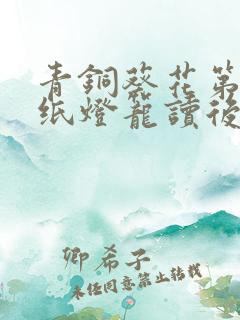 青銅葵花第
纸燈籠讀後
卿希子
未经同意禁止转载